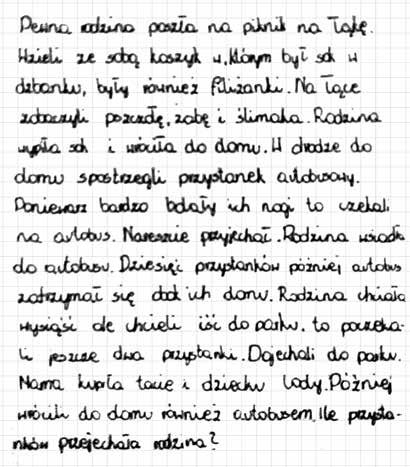 Pewna rodzina poszła na piknik na łąkę.
Wzieli ze sobą koszyk w, którym był sok w
dzbanku, były również filiżanki. Na łące
zobaczyli pszczołę, żabę i ślimaka. Rodzina
wypiła sok i wróciła do domu. W drodze do
domu spostrzegli przystanek autobusowy.
Ponieważ bardzo bolały ich nogi to czekali
na autobus. Nareszcie przyjechał. Rodzina wsiadła
do autobusu. Dziesięć przystanków później autobus
zatrzymał się obok ich domu. Rodzina chciała
wysiąść ale chcieli iść do parku, to poczeka-
li jeszcze dwa przystanki. Dojechali do parku.
Mama kupiła tacie i dziecku lody. Później
wrócili do domu również autobusem. Ile przysta-
nków przejechała rodzina?